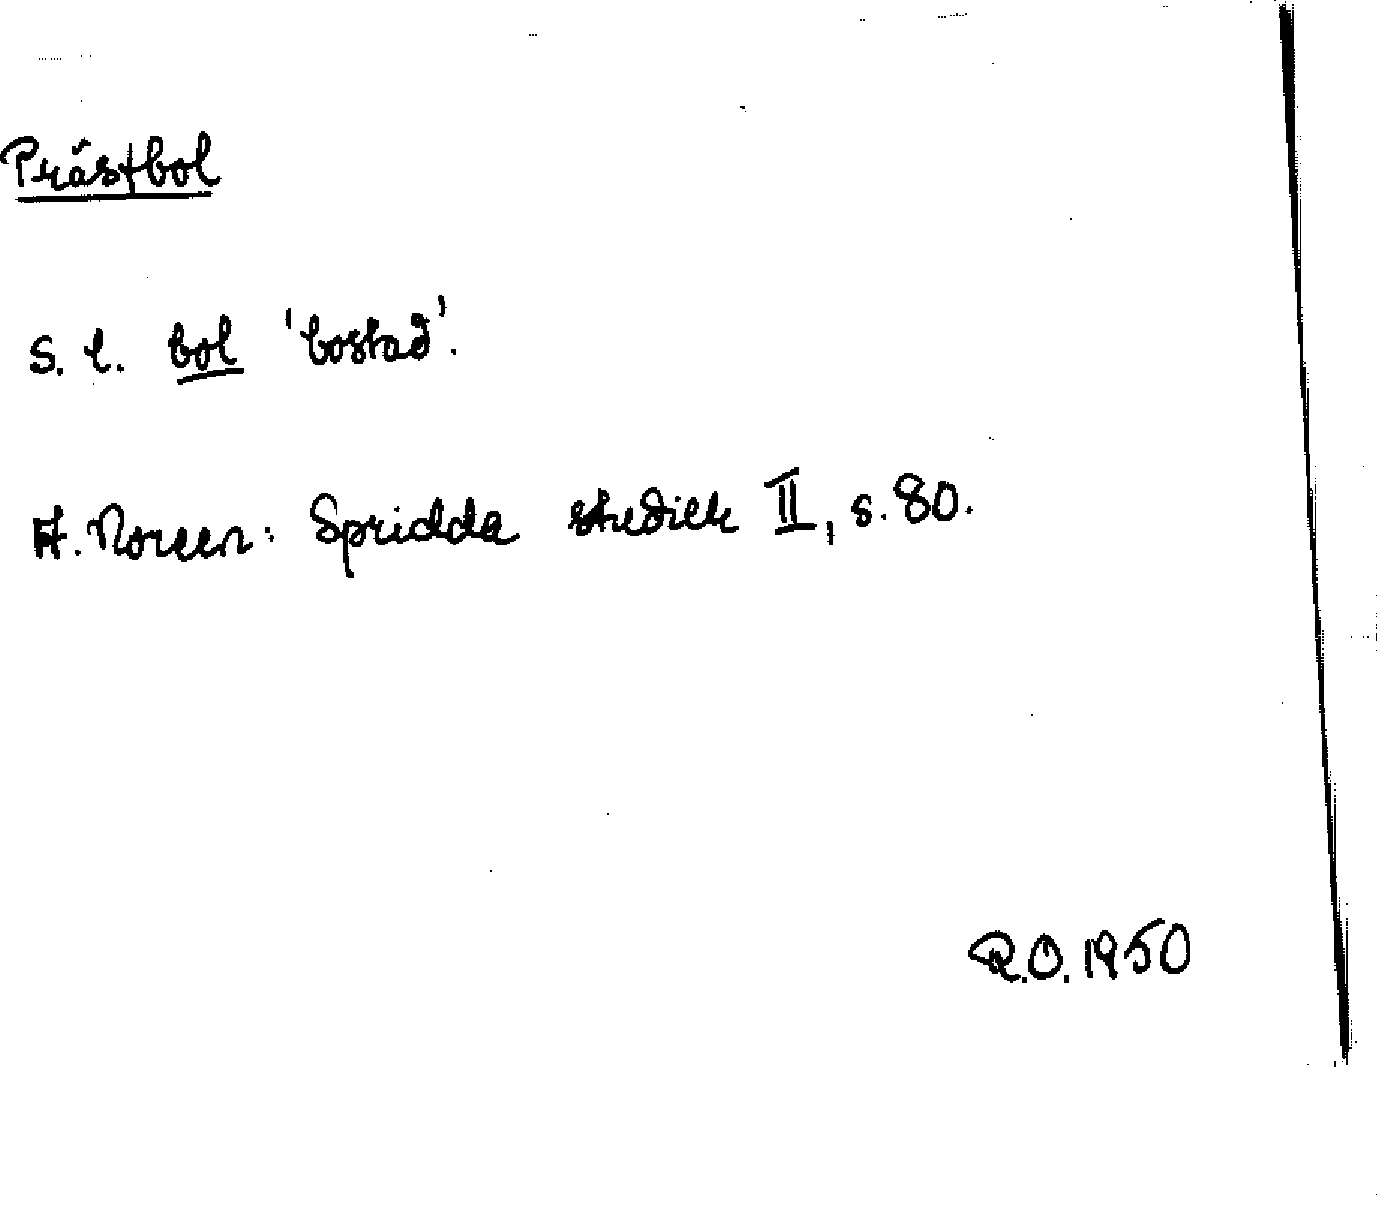 Prästbol
S. l. bol 'bostad'.
A. Noreen: Spridda studier II, s. 80.
R.O. 1950